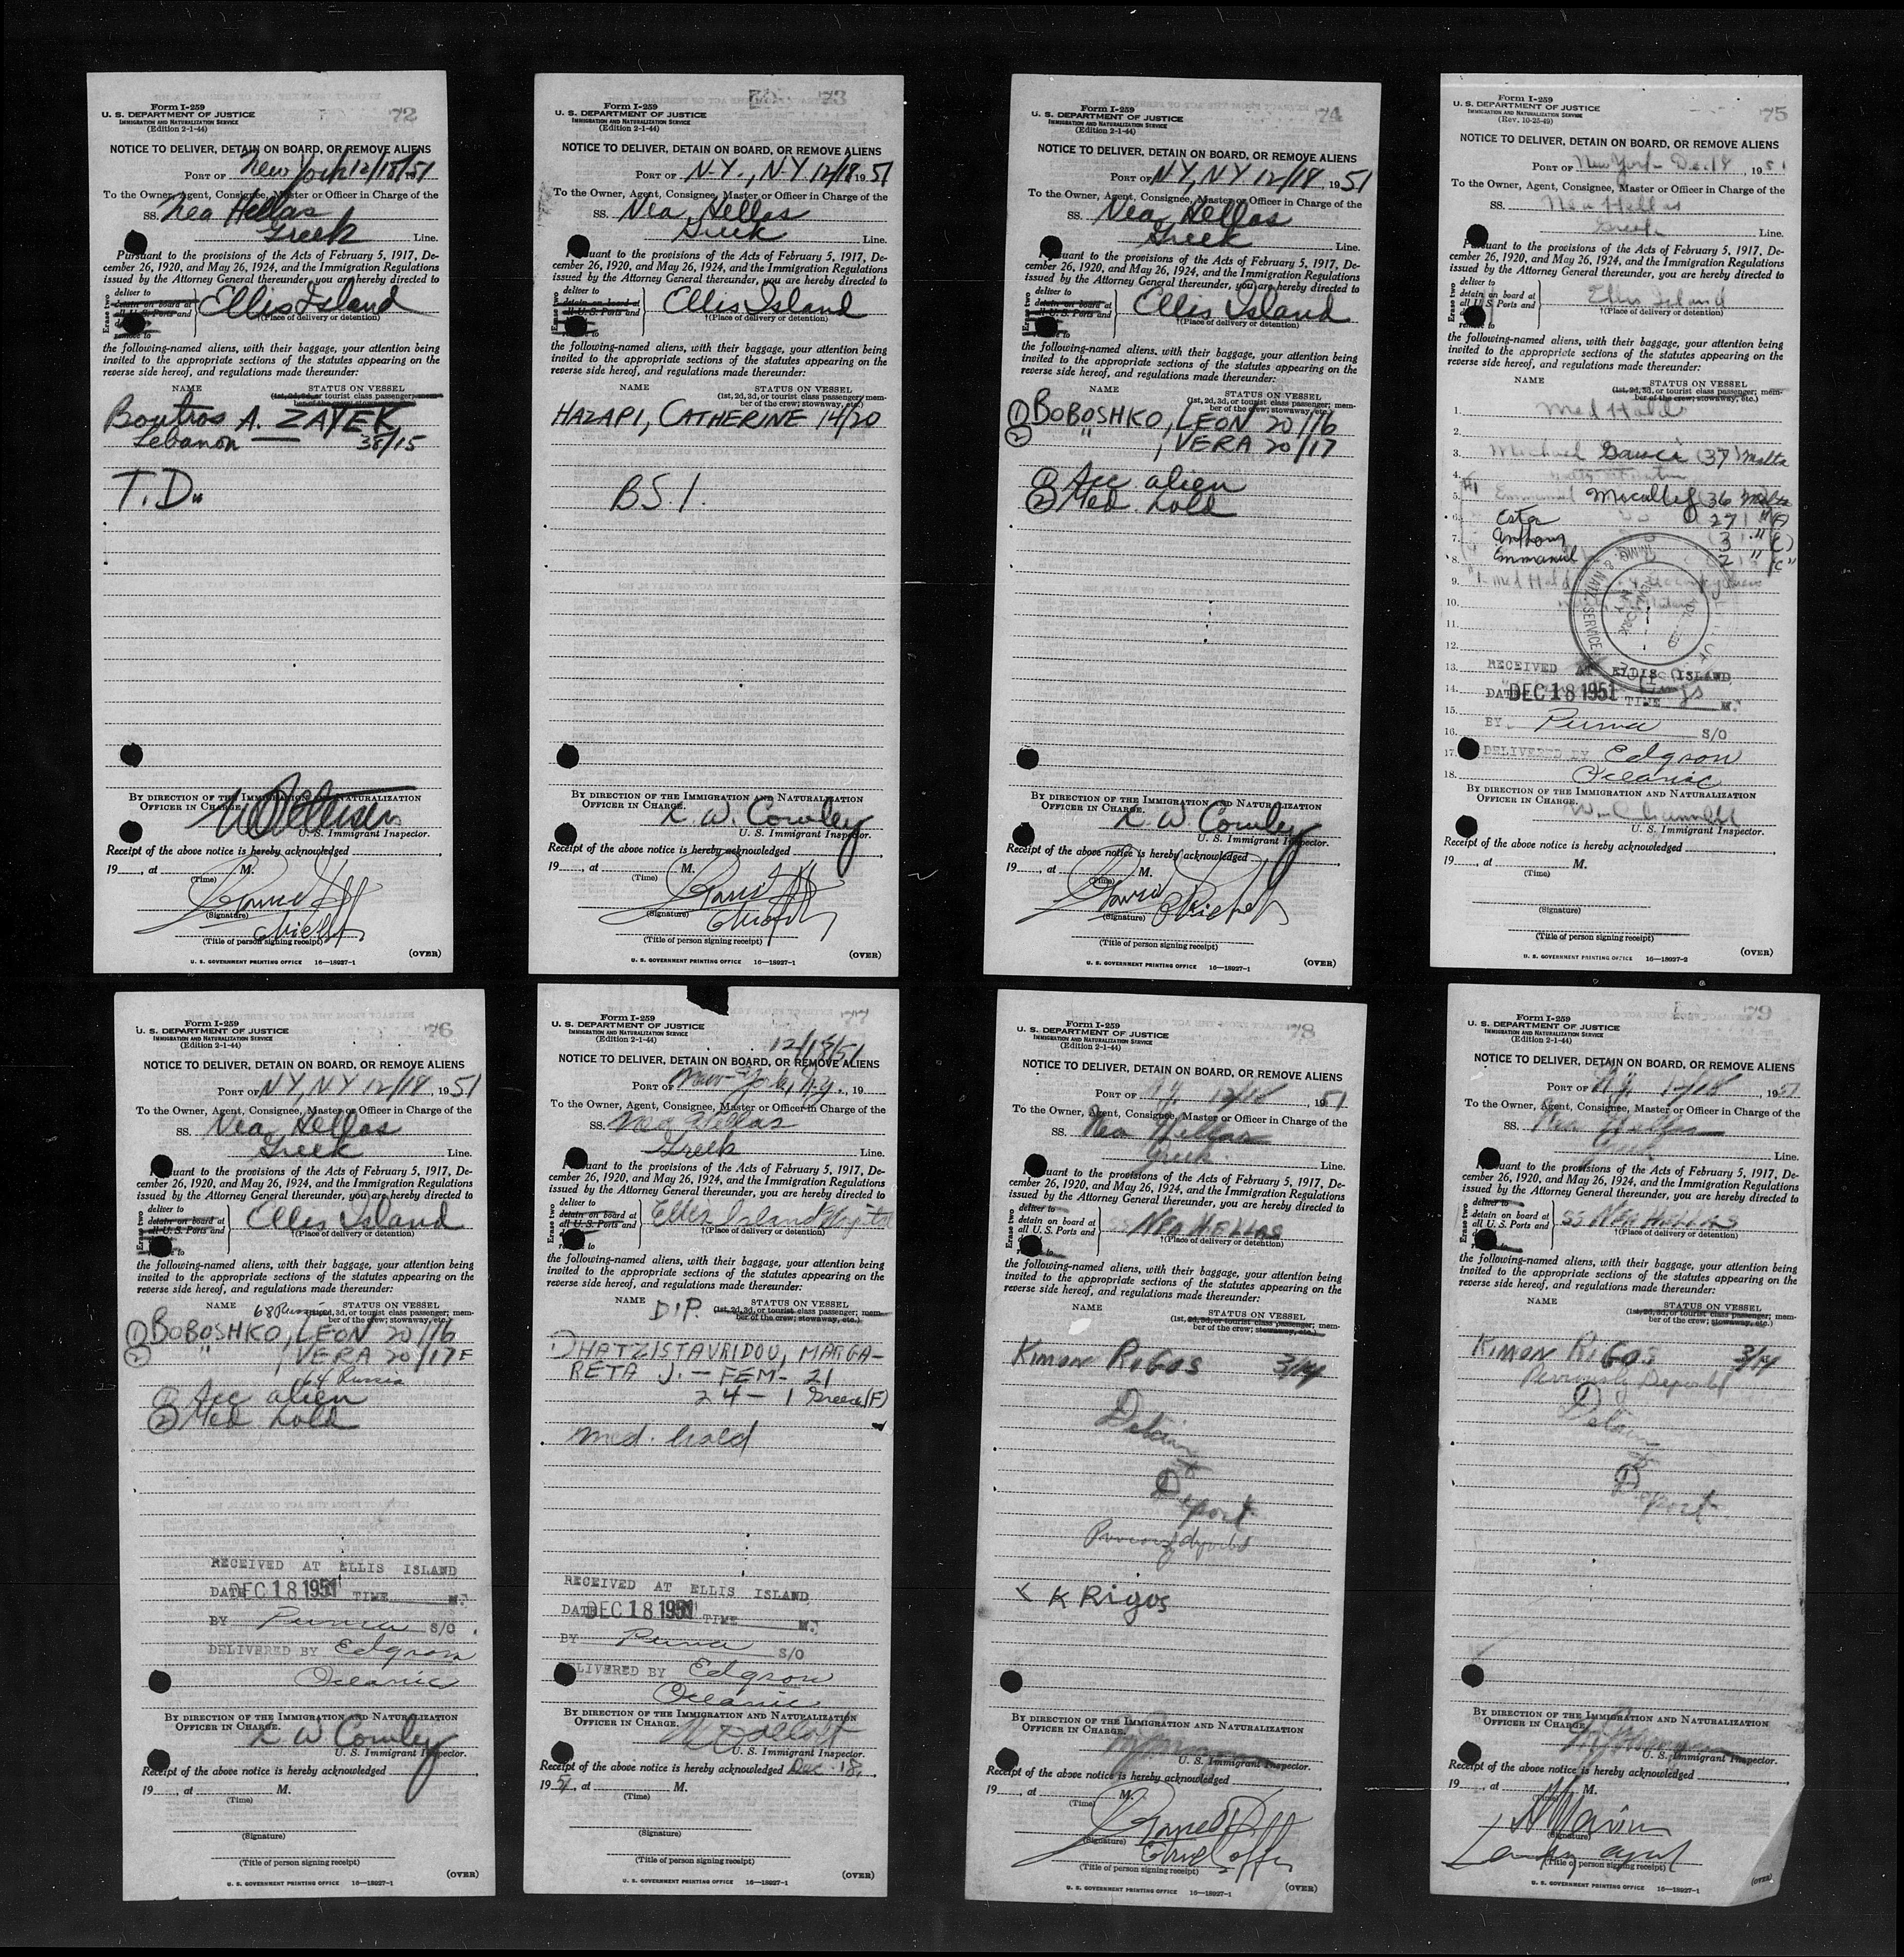 72
Form I-259
U. S. DEPARTMENT OF JUSTICE
IMMIGRATION AND NATURALIZATION SERVICE
(Edition 2-1-44)
NOTICE TO DELIVER, DETAIN ON BOARD, OR REMOVE ALIENS
PORT OF New York 12/18/51
To the Owner, Agent, Consignee, Master or Officer in Charge of the
SS. Nea Hellas
Greek Line.
Pursuant to the provisions of the Acts of February 5, 1917, De-
cember 26, 1920, and May 26, 1924, and the Immigration Regulations
issued by the Attorney General thereunder, you are hereby directed to
Erase two
deliver to
detain on board at
all U. S. Ports and
remove to
Ellis Island
†(Place of delivery or detention)
the following-named aliens, with their baggage, your attention being
invited to the appropriate sections of the statutes appearing on the
reverse side hereof, and regulations made thereunder:
NAME STATUS ON VESSEL
(1st, 2d, 3d, or tourist class passenger; mem-
ber of the crew; stowaway, etc.)
Boutros A. ZAYEK
Lebanon 38/15
T.D.
BY DIRECTION OF THE IMMIGRATION AND NATURALIZATION
OFFICER IN CHARGE.
U. S. Immigrant Inspector.
Receipt of the above notice is hereby acknowledged
19, at M.
(Time)
(Signature)
(Title of person signing receipt)
(OVER)
U. S. GOVERNMENT PRINTING OFFICE 16—18927-1
73
Form I-259
U. S. DEPARTMENT OF JUSTICE
IMMIGRATION AND NATURALIZATION SERVICE
(Edition 2-1-44)
NOTICE TO DELIVER, DETAIN ON BOARD, OR REMOVE ALIENS
PORT OF N.Y., N.Y 12/18 1951
To the Owner, Agent, Consignee, Master or Officer in Charge of the
SS. Nea Hellas
Greek Line.
Pursuant to the provisions of the Acts of February 5, 1917, De-
cember 26, 1920, and May 26, 1924, and the Immigration Regulations
issued by the Attorney General thereunder, you are hereby directed to
Erase two
deliver to
detain on board at
all U. S. Ports and
Ellis Island
†(Place of delivery or detention)
the following-named aliens, with their baggage, your attention being
invited to the appropriate sections of the statutes appearing on the
reverse side hereof, and regulations made thereunder:
NAME STATUS ON VESSEL
(1st, 2d, 3d, or tourist class passenger; mem-
ber of the crew; stowaway, etc.)
HAZAPI, CATHERINE 14/20
BSI.
BY DIRECTION OF THE IMMIGRATION AND NATURALIZATION
OFFICER IN CHARGE.
L. W. Cowley
U. S. Immigrant Inspector.
Receipt of the above notice is hereby acknowledged
19, at M.
(Time)
(Signature)
(Title of person signing receipt)
(OVER)
U. S. GOVERNMENT PRINTING OFFICE 16—18927-1
74
Form I-259
U. S. DEPARTMENT OF JUSTICE
IMMIGRATION AND NATURALIZATION SERVICE
(Edition 2-1-44)
NOTICE TO DELIVER, DETAIN ON BOARD, OR REMOVE ALIENS
PORT OF NY, NY 12/18, 1951
To the Owner, Agent, Consignee, Master or Officer in Charge of the
SS. Nea Hellas
Greek Line.
Pursuant to the provisions of the Acts of February 5, 1917, De-
cember 26, 1920, and May 26, 1924, and the Immigration Regulations
issued by the Attorney General thereunder, you are hereby directed to
Erase two
deliver to
detain on board at
all U. S. Ports and
Ellis Island
†(Place of delivery or detention)
the following-named aliens, with their baggage, your attention being
invited to the appropriate sections of the statutes appearing on the
reverse side hereof, and regulations made thereunder:
NAME STATUS ON VESSEL
(1st, 2d, 3d, or tourist class passenger; mem-
ber of the crew; stowaway, etc.)
① BOBOSHKO, LEON 20/16
② " , VERA 20/17
① Acc alien
② Med. hold
BY DIRECTION OF THE IMMIGRATION AND NATURALIZATION
OFFICER IN CHARGE.
L W Cowley
U. S. Immigrant Inspector.
Receipt of the above notice is hereby acknowledged
19, at M.
(Time)
(Signature)
(Title of person signing receipt)
(OVER)
U. S. GOVERNMENT PRINTING OFFICE 16—18927-1
75
Form I-259
U. S. DEPARTMENT OF JUSTICE
IMMIGRATION AND NATURALIZATION SERVICE
(Rev. 10-25-49)
NOTICE TO DELIVER, DETAIN ON BOARD, OR REMOVE ALIENS
PORT OF New York Dec. 18, 1951
To the Owner, Agent, Consignee, Master or Officer in Charge of the
SS. Nea Hellas
Greek Line.
Pursuant to the provisions of the Acts of February 5, 1917, De-
cember 26, 1920, and May 26, 1924, and the Immigration Regulations
issued by the Attorney General thereunder, you are hereby directed to
Erase two
deliver to
detain on board at
all U. S. Ports and
remove to
Ellis Island
†(Place of delivery or detention)
the following-named aliens, with their baggage, your attention being
invited to the appropriate sections of the statutes appearing on the
reverse side hereof, and regulations made thereunder:
NAME STATUS ON VESSEL
(1st, 2d, 3d, or tourist class passenger; mem-
ber of the crew; stowaway, etc.)
1. Med Hold
2.
3. Michael Gauci (37) Malta
4.
5. #1 Emmanuel Micallef 36 Malta
6. Ester 27 " (F)
7. Anthony 3 " (C)
8. Emmanuel 2 " (C)
9. #1 Med Hold
10.
11.
12.
13. RECEIVED AT ELLIS ISLAND
14. DATE DEC 18 1951 TIME M.
15.
16. BY Purva S/O
17. DELIVERED BY Edgrow
18. Oceanic
BY DIRECTION OF THE IMMIGRATION AND NATURALIZATION
OFFICER IN CHARGE.
U. S. Immigrant Inspector.
Receipt of the above notice is hereby acknowledged
19, at M.
(Time)
(Signature)
(Title of person signing receipt)
(OVER)
U. S. GOVERNMENT PRINTING OFFICE 16—18927-2
76
Form I-259
U. S. DEPARTMENT OF JUSTICE
IMMIGRATION AND NATURALIZATION SERVICE
(Edition 2-1-44)
NOTICE TO DELIVER, DETAIN ON BOARD, OR REMOVE ALIENS
PORT OF NY, NY 12/18 1951
To the Owner, Agent, Consignee, Master or Officer in Charge of the
SS. Nea Hellas
Greek Line.
Pursuant to the provisions of the Acts of February 5, 1917, De-
cember 26, 1920, and May 26, 1924, and the Immigration Regulations
issued by the Attorney General thereunder, you are hereby directed to
Erase two
deliver to
detain on board at
all U. S. Ports and
Ellis Island
†(Place of delivery or detention)
the following-named aliens, with their baggage, your attention being
invited to the appropriate sections of the statutes appearing on the
reverse side hereof, and regulations made thereunder:
NAME 68 Russia STATUS ON VESSEL
(1st, 2d, 3d, or tourist class passenger; mem-
ber of the crew; stowaway, etc.)
① BOBOSHKO, LEON 20/16
② " , VERA 20/17 F
64 Russia
① Acc alien
② Med. hold
RECEIVED AT ELLIS ISLAND
DATE DEC 18 1951 TIME M.
BY Purva S/O
DELIVERED BY Edgrow
Oceanic
BY DIRECTION OF THE IMMIGRATION AND NATURALIZATION
OFFICER IN CHARGE.
L W Cowley
U. S. Immigrant Inspector.
Receipt of the above notice is hereby acknowledged
19, at M.
(Time)
(Signature)
(Title of person signing receipt)
(OVER)
U. S. GOVERNMENT PRINTING OFFICE 16—18927-1
77
Form I-259
U. S. DEPARTMENT OF JUSTICE
IMMIGRATION AND NATURALIZATION SERVICE
(Edition 2-1-44)
12/18/51
NOTICE TO DELIVER, DETAIN ON BOARD, OR REMOVE ALIENS
PORT OF New York, N.Y., 19
To the Owner, Agent, Consignee, Master or Officer in Charge of the
SS. Nea Hellas
Greek Line.
Pursuant to the provisions of the Acts of February 5, 1917, De-
cember 26, 1920, and May 26, 1924, and the Immigration Regulations
issued by the Attorney General thereunder, you are hereby directed to
Erase two
deliver to
detain on board at
all U. S. Ports and
Ellis Island Hospital
†(Place of delivery or detention)
the following-named aliens, with their baggage, your attention being
invited to the appropriate sections of the statutes appearing on the
reverse side hereof, and regulations made thereunder:
NAME D.P. STATUS ON VESSEL
(1st, 2d, 3d, or tourist class passenger; mem-
ber of the crew; stowaway, etc.)
1) HATZISTAVRIDOU, MARGA-
RETA J. — FEM- 21
24 — 1 Greece (F)
Med. hold
RECEIVED AT ELLIS ISLAND
DATE DEC 18 1951 TIME M.
BY Purva S/O
DELIVERED BY Edgrow
Oceanic
BY DIRECTION OF THE IMMIGRATION AND NATURALIZATION
OFFICER IN CHARGE.
U. S. Immigrant Inspector.
Receipt of the above notice is hereby acknowledged Dec. 18,
1951, at M.
(Time)
(Signature)
(Title of person signing receipt)
(OVER)
U. S. GOVERNMENT PRINTING OFFICE 16—18927-1
78
Form I-259
U. S. DEPARTMENT OF JUSTICE
IMMIGRATION AND NATURALIZATION SERVICE
(Edition 2-1-44)
NOTICE TO DELIVER, DETAIN ON BOARD, OR REMOVE ALIENS
PORT OF N.Y. 12/18, 1951
To the Owner, Agent, Consignee, Master or Officer in Charge of the
SS. Nea Hellas
Greek Line.
Pursuant to the provisions of the Acts of February 5, 1917, De-
cember 26, 1920, and May 26, 1924, and the Immigration Regulations
issued by the Attorney General thereunder, you are hereby directed to
Erase two
deliver to
detain on board at
all U. S. Ports and
SS NEA HELLAS
†(Place of delivery or detention)
the following-named aliens, with their baggage, your attention being
invited to the appropriate sections of the statutes appearing on the
reverse side hereof, and regulations made thereunder:
NAME STATUS ON VESSEL
(1st, 2d, 3d, or tourist class passenger; mem-
ber of the crew; stowaway, etc.)
KIMON RIGOS 3/14
Detain
&
Deport
Previously deported
X K Rigos
BY DIRECTION OF THE IMMIGRATION AND NATURALIZATION
OFFICER IN CHARGE.
U. S. Immigrant Inspector.
Receipt of the above notice is hereby acknowledged
19, at M.
(Time)
(Signature)
(Title of person signing receipt)
(OVER)
U. S. GOVERNMENT PRINTING OFFICE 16—18927-1
79
Form I-259
U. S. DEPARTMENT OF JUSTICE
IMMIGRATION AND NATURALIZATION SERVICE
(Edition 2-1-44)
NOTICE TO DELIVER, DETAIN ON BOARD, OR REMOVE ALIENS
PORT OF N.Y. 12/18, 1951
To the Owner, Agent, Consignee, Master or Officer in Charge of the
SS. Nea Hellas
Greek Line.
Pursuant to the provisions of the Acts of February 5, 1917, De-
cember 26, 1920, and May 26, 1924, and the Immigration Regulations
issued by the Attorney General thereunder, you are hereby directed to
Erase two
deliver to
detain on board at
all U. S. Ports and
SS NEA HELLAS
†(Place of delivery or detention)
the following-named aliens, with their baggage, your attention being
invited to the appropriate sections of the statutes appearing on the
reverse side hereof, and regulations made thereunder:
NAME STATUS ON VESSEL
(1st, 2d, 3d, or tourist class passenger; mem-
ber of the crew; stowaway, etc.)
KIMON RIGOS 3/14
Previously Deported
Detain
&
Deport
BY DIRECTION OF THE IMMIGRATION AND NATURALIZATION
OFFICER IN CHARGE.
U. S. Immigrant Inspector.
Receipt of the above notice is hereby acknowledged
19, at M.
(Time)
(Signature)
(Title of person signing receipt)
(OVER)
U. S. GOVERNMENT PRINTING OFFICE 16—18927-1